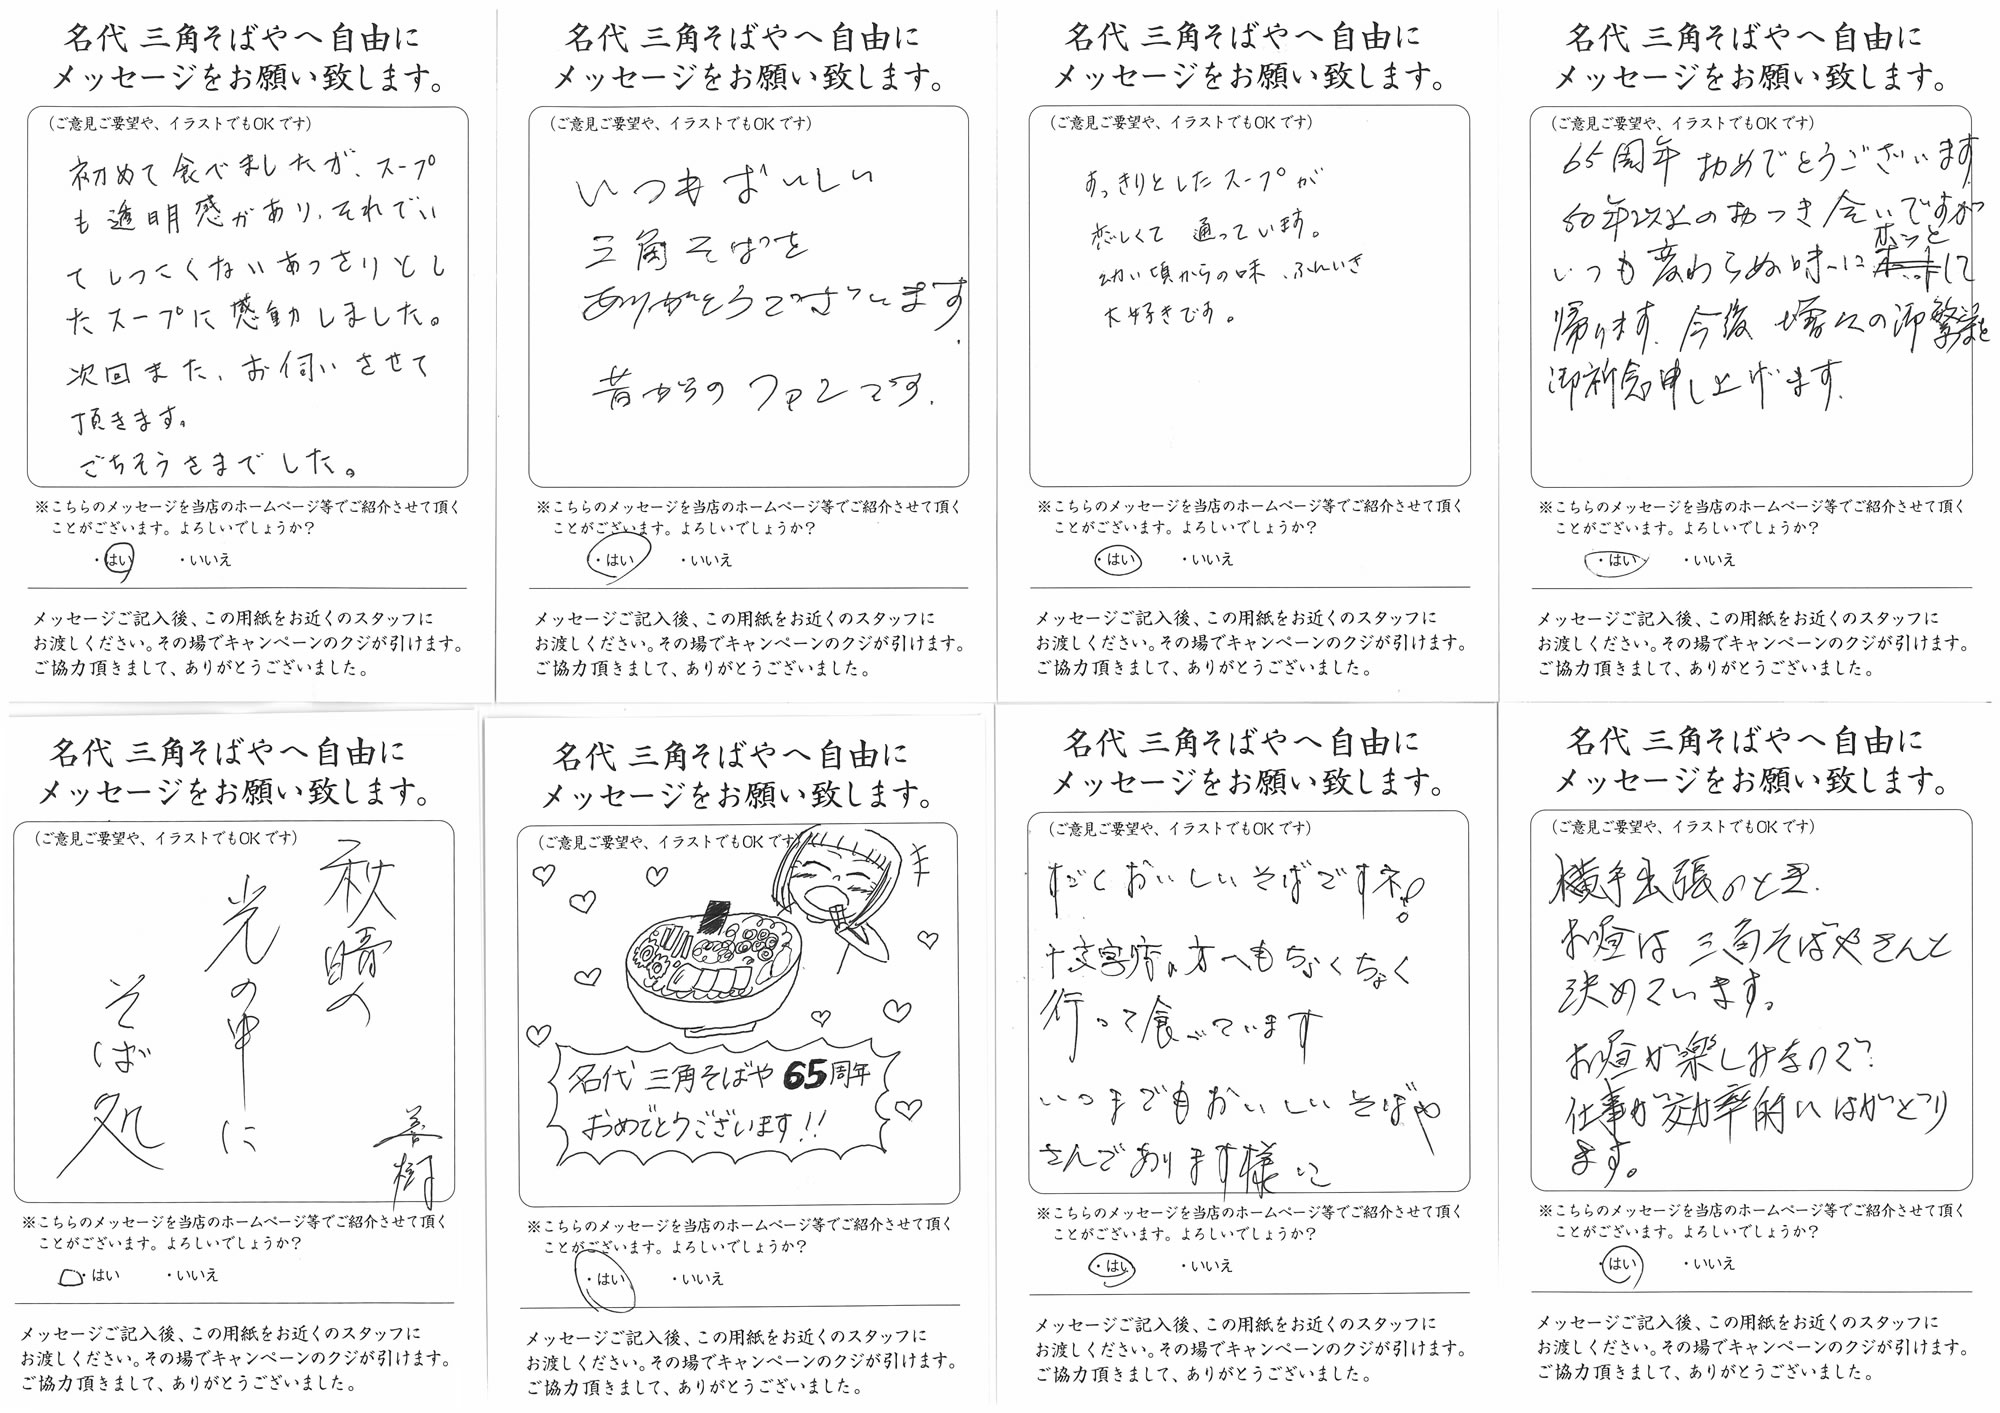 名代 三角そばやへ自由に
メッセージをお願い致します。
（ご意見ご要望や、イラストでもOKです）
初めて食べましたが、スープ
も透明感があり、それでい
てしつこくないあっさりとし
たスープに感動しました。
次回また、お伺いさせて
頂きます。
ごちそうさまでした。
※こちらのメッセージを当店のホームページ等でご紹介させて頂く
ことがございます。よろしいでしょうか？
・はい ・いいえ
メッセージご記入後、この用紙をお近くのスタッフに
お渡しください。その場でキャンペーンのクジが引けます。
ご協力頂きまして、ありがとうございました。
名代 三角そばやへ自由に
メッセージをお願い致します。
（ご意見ご要望や、イラストでもOKです）
いつもおいしい
三角そばを
ありがとうございます.
昔からのファンです.
※こちらのメッセージを当店のホームページ等でご紹介させて頂く
ことがございます。よろしいでしょうか？
・はい ・いいえ
メッセージご記入後、この用紙をお近くのスタッフに
お渡しください。その場でキャンペーンのクジが引けます。
ご協力頂きまして、ありがとうございました。
名代 三角そばやへ自由に
メッセージをお願い致します。
（ご意見ご要望や、イラストでもOKです）
すっきりとしたスープが
恋しくて 通っています。
幼い頃からの味、ふんいき
大好きです。
※こちらのメッセージを当店のホームページ等でご紹介させて頂く
ことがございます。よろしいでしょうか？
・はい ・いいえ
メッセージご記入後、この用紙をお近くのスタッフに
お渡しください。その場でキャンペーンのクジが引けます。
ご協力頂きまして、ありがとうございました。
名代 三角そばやへ自由に
メッセージをお願い致します。
（ご意見ご要望や、イラストでもOKです）
65周年 おめでとうございます
50年以上のおつき合いですが
いつも変わらぬ味にホッとして
帰ります. 今後 増々の御繁栄を
御祈念申し上げます.
※こちらのメッセージを当店のホームページ等でご紹介させて頂く
ことがございます。よろしいでしょうか？
・はい ・いいえ
メッセージご記入後、この用紙をお近くのスタッフに
お渡しください。その場でキャンペーンのクジが引けます。
ご協力頂きまして、ありがとうございました。
名代 三角そばやへ自由に
メッセージをお願い致します。
（ご意見ご要望や、イラストでもOKです）
秋晴の
光の中に
そば処
善樹
※こちらのメッセージを当店のホームページ等でご紹介させて頂く
ことがございます。よろしいでしょうか？
・はい ・いいえ
メッセージご記入後、この用紙をお近くのスタッフに
お渡しください。その場でキャンペーンのクジが引けます。
ご協力頂きまして、ありがとうございました。
名代 三角そばやへ自由に
メッセージをお願い致します。
（ご意見ご要望や、イラストでもOKです
名代 三角そばや 65周年
おめでとうございます!!
※こちらのメッセージを当店のホームページ等でご紹介させて頂く
ことがございます。よろしいでしょうか？
・はい ・いいえ
メッセージご記入後、この用紙をお近くのスタッフに
お渡しください。その場でキャンペーンのクジが引けます。
ご協力頂きまして、ありがとうございました。
名代 三角そばやへ自由に
メッセージをお願い致します。
（ご意見ご要望や、イラストでもOKです）
すごくおいしいそばですネ!
十文字店の方へもちょくちょく
行って食べています
いつまでもおいしいそばや
さんであります様に
※こちらのメッセージを当店のホームページ等でご紹介させて頂く
ことがございます。よろしいでしょうか？
・はい ・いいえ
メッセージご記入後、この用紙をお近くのスタッフに
お渡しください。その場でキャンペーンのクジが引けます。
ご協力頂きまして、ありがとうございました。
名代 三角そばやへ自由に
メッセージをお願い致します。
（ご意見ご要望や、イラストでもOKです）
横手出張のとき.
お昼は 三角そばやさんと
決めています。
お昼が楽しみなので
仕事が効率的にはかどり
ます。
※こちらのメッセージを当店のホームページ等でご紹介させて頂く
ことがございます。よろしいでしょうか？
・はい ・いいえ
メッセージご記入後、この用紙をお近くのスタッフに
お渡しください。その場でキャンペーンのクジが引けます。
ご協力頂きまして、ありがとうございました。